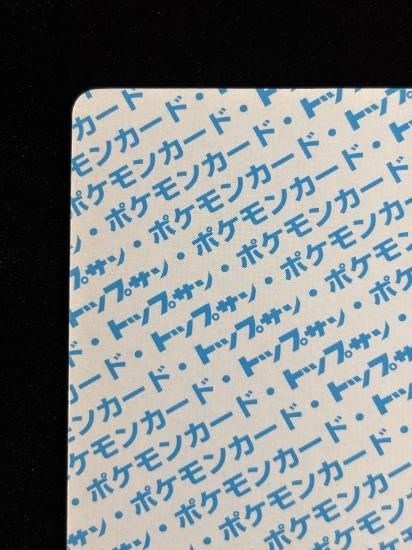 カード・
モンカード・ト
ポケモンカード・トップ
・ポケモンカード・トップ
サン・ポケモンカード・
トップサン・ポケモンカード
・トップサン・ポケモンカ
ード・トップサン・ポケモ
カード・トップサン・ポケ
ンカード・トップサン・
ケモンカード・トップサン
ポケモンカード・トップ
・ポケモンカード・
サン・ポケモンカード
・ポケモン